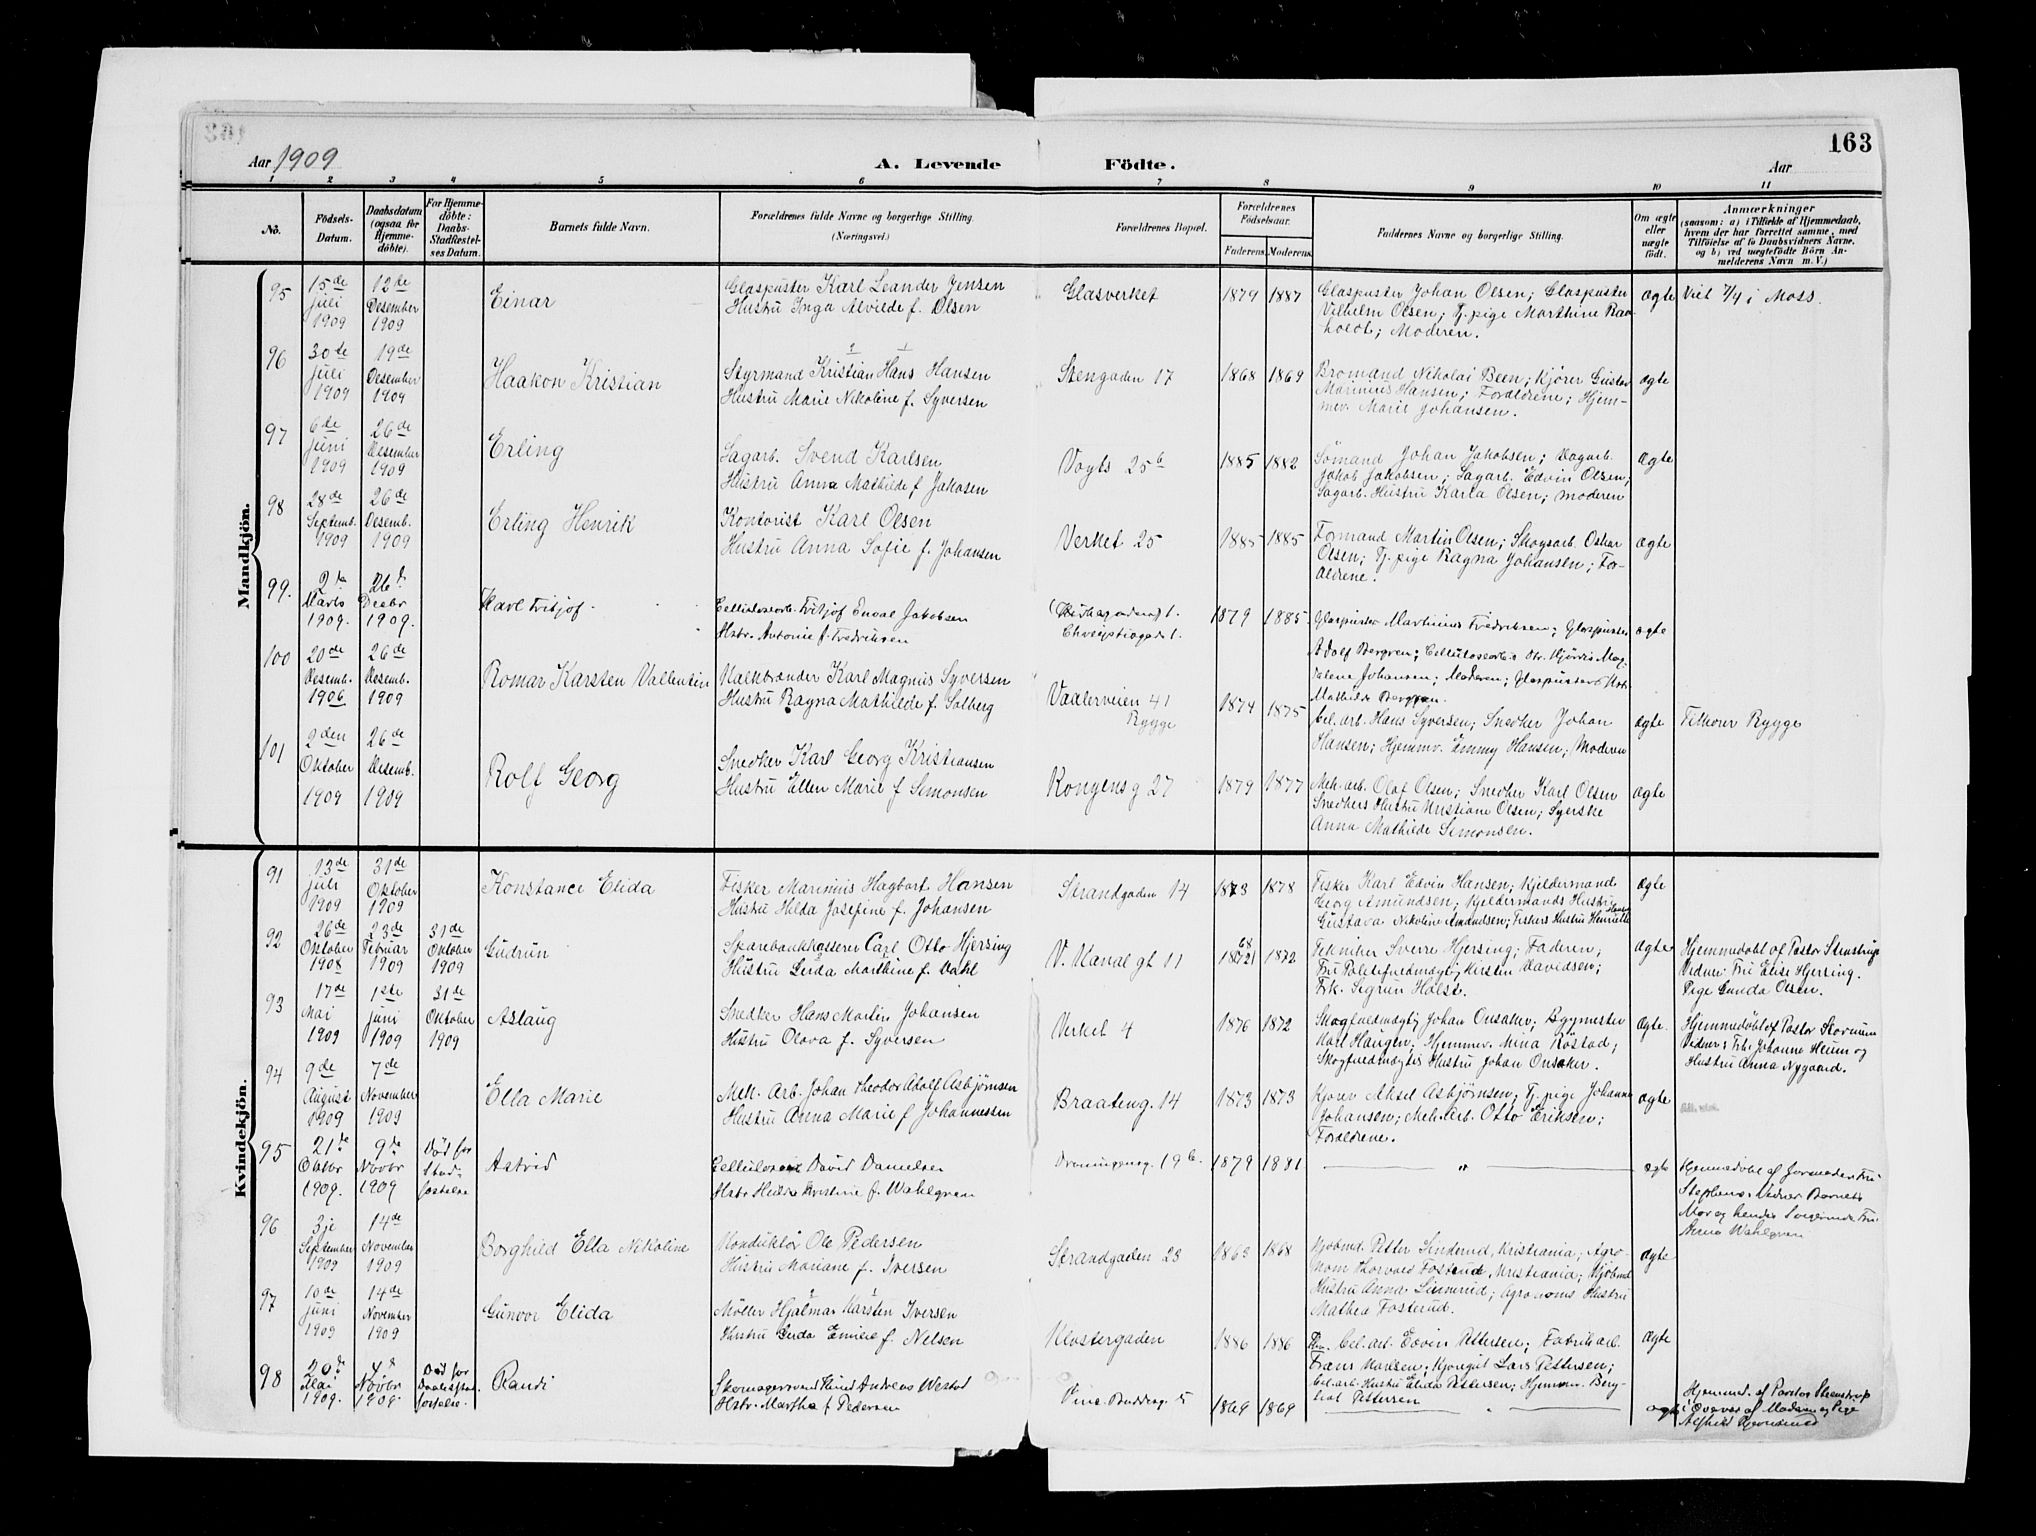 163
Aar 1909
A. Levende Födte.
Aar
1 2 3 4 5 6 7 8 9 10 11
Nö.
Födsels-Datum.
Daabsdatum (ogsaa för Hjemmedöbte).
For Hjemmedöbte: Daabs-Stadfæstelses Datum.
Barnets fulde Navn.
Forældrenes fulde Navne og borgerlige Stilling. (Næringsvei.)
Forældrenes Bopæl.
Forældrenes Födselsaar.
Faderens. Moderens.
Faddernes Navne og borgerlige Stilling.
Om ægte eller uægte födt.
Anmærkninger
(saasom: a) i Tilfælde af Hjemmedaab, hvem der har forrettet samme, med Tilföielse af to Daabsvidners Navne. og b) ved uægtefödte Börn Anmelderens Navn m. V.)
Mandkjön.
95 15de Juli 1909 12te Desember 1909 Einar
Glaspuster Karl Leander Jensen
Hustru Inga Alvilde f. Olsen
Glasverket 1879 1887
Glaspuster Johan Olsen; Glaspuster
Vilhelm Olsen; Tj. pige Marthine
Moderen.
ægte i Moss.
96 30te Juli 1909 19de Desember 1909 Haakon Kristian
Styrmand Kristian Hans Hansen
Hustru Marie Nikoline f. Syversen
Stengaden 17 1868 1869
Bromand Nikolai Been; Kjörer Gustav
Marinius Hansen; Forældrene; Hjem-
mev. Marie Johansen.
ægte
97 6te Juni 1909 26de Desember 1909 Erling
Sagarb. Svend Karlsen
Hustru Anna Mathilde f. Jakosen
Vogts 25b 1885 1882
Sömand Johan Jakobsen; Sagarb.
Jakob Jakobsen; Sagarb. Edvin Olsen;
Sagarb. Hustru Karla Olsen; moderen
ægte
98 28de Septemb. 1909 26de Desemb. 1909 Erling Henrik
Kontorist Karl Olsen
Hustru Anna Sofie f. Johansen
Verket 25 1885 1885
Formand Martin Olsen; Skogsarb. Oskar
Olsen; Tj. pige Ragna Johansen; For-
ældrene.
ægte
99. 2de Marts 1909. 26d Decbr 1909. Karl Fritjof.
Cellulosearb. Fritjof Enval Jakobsen
Hstr. Antonie f. Fredriksen
1879 1885.
Glaspuster Marthinus Fredriksen; Glaspuster
Adolf Bergren; Cellulosearb.s Htr. Hjördis Mag-
dalene Johansen; Moderen; Glaspusters Hstr.
Mathilde Berggren.
ægte
100 20de Desemb. 1906 26de Desemb. 1909 Romar Karsten Vallentin
Kalkbrænder Karl Magnus Syversen
Hustru Ragna Mathilde f. Solberg
Vaalerveien 41
Rygge
1874 1875
Cel. arb. Hans Syversen; Snedker Johan
Hansen; Hjemmv. Emmy Hansen; Moderen
ægte Rygge
101 2den Oktober 1909 26de Desemb. 1909 Rolf Georg
Snedker Karl Georg Kristiansen
Hustru Ellen Marie f. Simonsen
Kongens g 27 1879 1877
Mek. arb. Olaf Olsen; Snedker Karl Olsen
Snedkers Hustru Kristiane Olsen; Syerske
Anna Mathilde Simonsen.
ægte
Kvindekjön.
91 13de Juli 1909 31de Oktober 1909 Konstance Elida
Fisker Marinius Hagbart Hansen
Hustru Hilda Josefine f. Johansen
Strandgaden 14 1873 1878
Fisker Karl Edvin Hansen; Kjeldermand
Georg Amundsen; Kjeldermands Hustru
Gustava Nikoline Amundsen; Fiskers Hustru Henriette Hansen
ægte
92 26de Oktober 1908 23de Februar 1909 31de Oktober 1909 Gudrun
Sparebankkasserer Carl Otto Hjersing
Hustru Gerda Marthine f. Dahl
V. Kanal gt 11 68 1872
Tekniker Sverre Hjersing; Faderen;
Fru Politifuldmægtig Kirsten Davidsen;
Frk. Sigrun Holst.
ægte
Hjemmedöbt af Pastor Stenstrup
Vidner: Fru Elise Hjersing.
Pige Gunda Olsen.
93 17de Mai 1909 1ste Juni 1909 31de Oktober 1909 Aslaug
Snedker Hans Martin Johansen
Hustru Olava f. Syversen
Verket 4 1876 1872
Skogfuldmægtig Johan Onsaker, Bygmester
Karl Haugen; Hjemmev. Mina Röstad;
Skogfuldmægtigs Hustru Johan Onsaker.
ægte.
Hjemmedöbt af Pastor
Vidner: Frk. Johanne Heum og
Hustru Anna Nygaard.
94 9de August 1909 7de November 1909 Ella Marie
Mek. Arb. Johan Theodor Adolf Asbjörnsen
Hustru Anna Marie f. Johannessen
Braateng. 14 1873 1873
Kjörer Aksel Asbjörnsen; Tj. pige Johanne
Johansen; Mek. Arb. Otto Eriksen;
Forældrene.
ægte
95 21de Oktbr 1909. 9de Novbr 1909 Död för Stadfæstelse Astrid
David Danielsen
Hstr Hulda Kristine f. Wahlgren
Dronningensg. 19b. 1879 1881
— " —
ægte
Hjemmedöbt af Jordmoder Fru
Stephens. Vidner Barnets
Mor og hendes Svigerinde Fru
Anna Wahlgren
96 3je September 1909 14de November 1909 Borghild Ella Nikoline
Konduktör Ole Pedersen
Hustru Mariane f. Iversen
Strandgaden 23 1863 1868
Kjöbmd. Petter Sinderud, Kristiania; Agro-
nom Thorvald Fosterud, Kristiania; Kjöbmd.
Hustru Anna Sinnerud; Agronoms Hustru
Mathea Fosterud.
ægte
97 10de Juni 1909 14de November 1909 Gunvor Elida
Möller Hjalmar Karsten Iversen
Hustru Gerda Emilie f. Nelsen
Klostergaden 1886 1886
Cel. arb. Edvin Pettersen; Fabrikarb.
Frans Karlsen; Lars Pettersen;
Cel. arb. Hustru Elida Pettersen; Hjemmv. Berg-
liot Pettersen
ægte
98 20de Mai 1909. 4de Novbr 1909. Död for Daabsstadfæstelse. Randi
Skomagersvend Knud Andreas Westad
Hstr. Martha f. Pedersen
5 1869 1869
— " —
ægte
Hjemmed. af Pastor Stenstrup
i Overvær af Madam og Pige